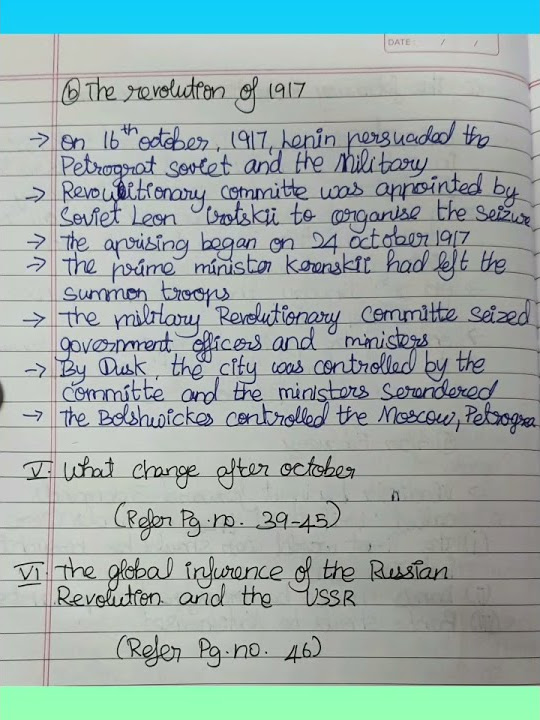 DATE: / /
ⓑ The revolution of 1917
→ On 16th october, 1917, Lenin persuaded the
Petrograt soviet and the Military
→ Revoulitionary committe was appointed by
Soviet Leon Trotskii to organise the seizure
→ The aprising began on 24 october 1917
→ The prime minister Kerenskii had left the
summon troops
→ The military Revolutionary Committe seized
government officers and ministers
→ By Dusk, the city was controlled by the
committe and the ministers serendered
→ The Bolshwickes controlled the Moscow, Petrogra
V. What change after october
(Refer Pg. no. 39-45)
VI The global infurence of the Russian
Revolution and the USSR
(Refer Pg. no. 46)